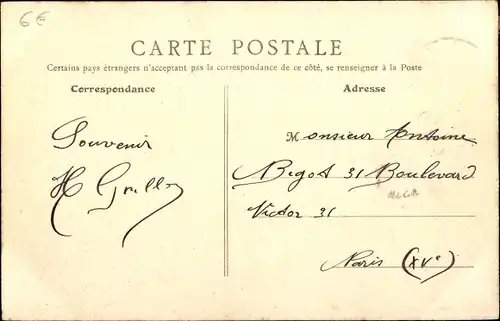 6€
CARTE POSTALE
Certains pays étrangers n'acceptant pas la correspondance de ce côté, se renseigner à la Poste
Correspondance
Adresse
Souvenir
H Grillo
Monsieur Antoine
Begot 31 Boulevard
Victor 31
Paris (XVe)